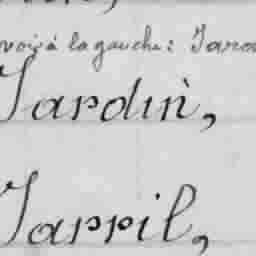 voir à la gauche: Jard
Jardin,
Jarril,